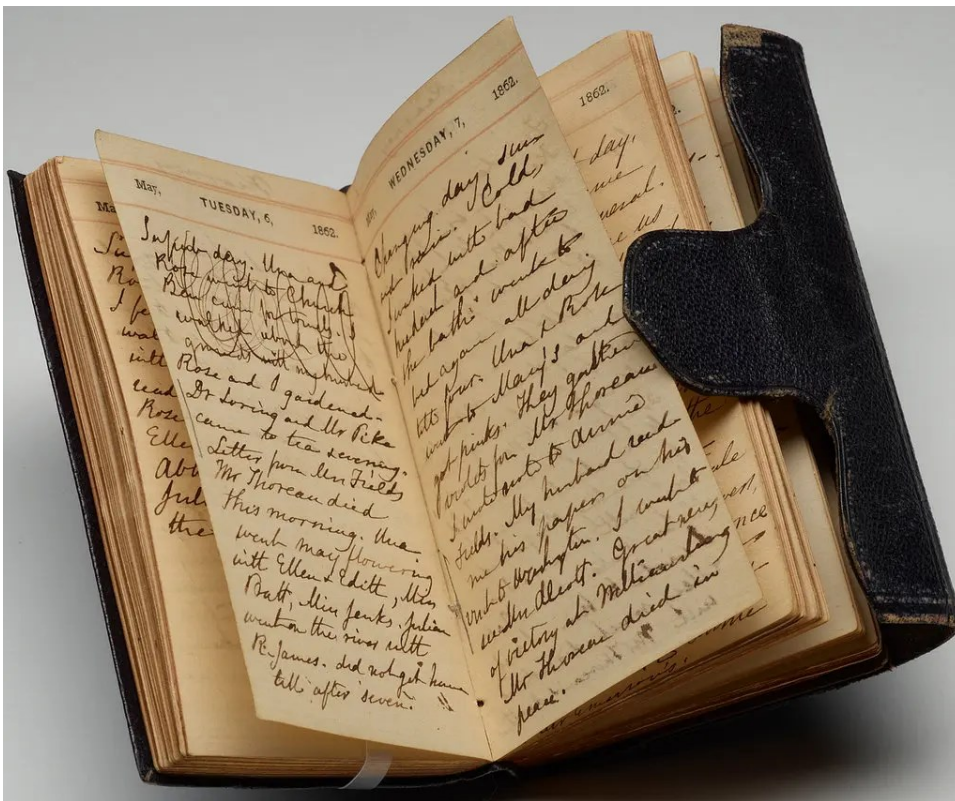 Ma
Su
Ro
I fe
wal
with
read
Rose
Elle
Abb
Juli
the
May, TUESDAY, 6, 1862.
Superb day. Una and
Rose went to Church.
came for
walked about the
grounds with my husband
Rose and I gardened.
Dr Loring and Mr Pike
came to tea & evening.
Letter from Mrs Fields
Mr Thoreau died
this morning. Una
went may flowering
with Ellen & Edith, Miss
Batt, Miss Jenks. Julian
went on the river with
R. James. did not get home
till after seven.
WEDNESDAY, 7, 1862.
Changing day sun
and rain. I Cold,
waked with bad
and after
the bath went to
bed again all day
till four. Una & Rose
went to Mary's and
got pinks. They gather
violets for Mr Thoreau
I wrote note to Annie
Fields. My husband read
me his papers on his
visit to I went to
see Mrs Alcott. Great news
of victory at Williamsburg
Mr Thoreau died in
peace.
1862.
day,
me
neral.
e us
2.
the